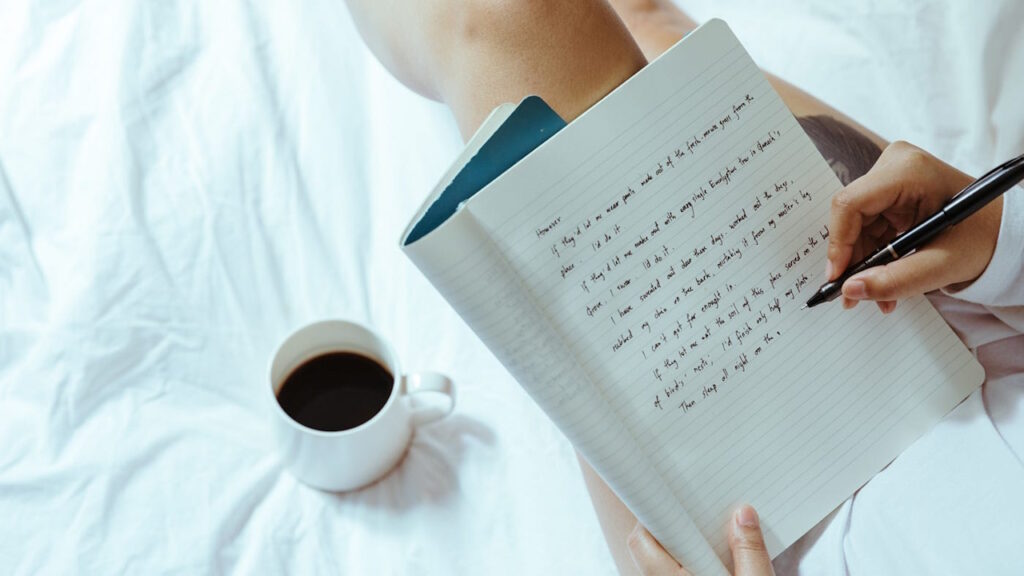 However
If they'd let me wear pants made out of the fresh-mown grass from the
place, I'd do it.
If they'd let me make out with every single Eucalyptus tree in
Grove, I'd do it.
I have never sweated out clear these days, worked out the dregs,
my chin on the bark, mistaking it from my master's leg
I can't get far enough in.
If they let me eat the soil of this place served on the
of bird's nests, I'd finish only half my plate.
Then sleep all night on the